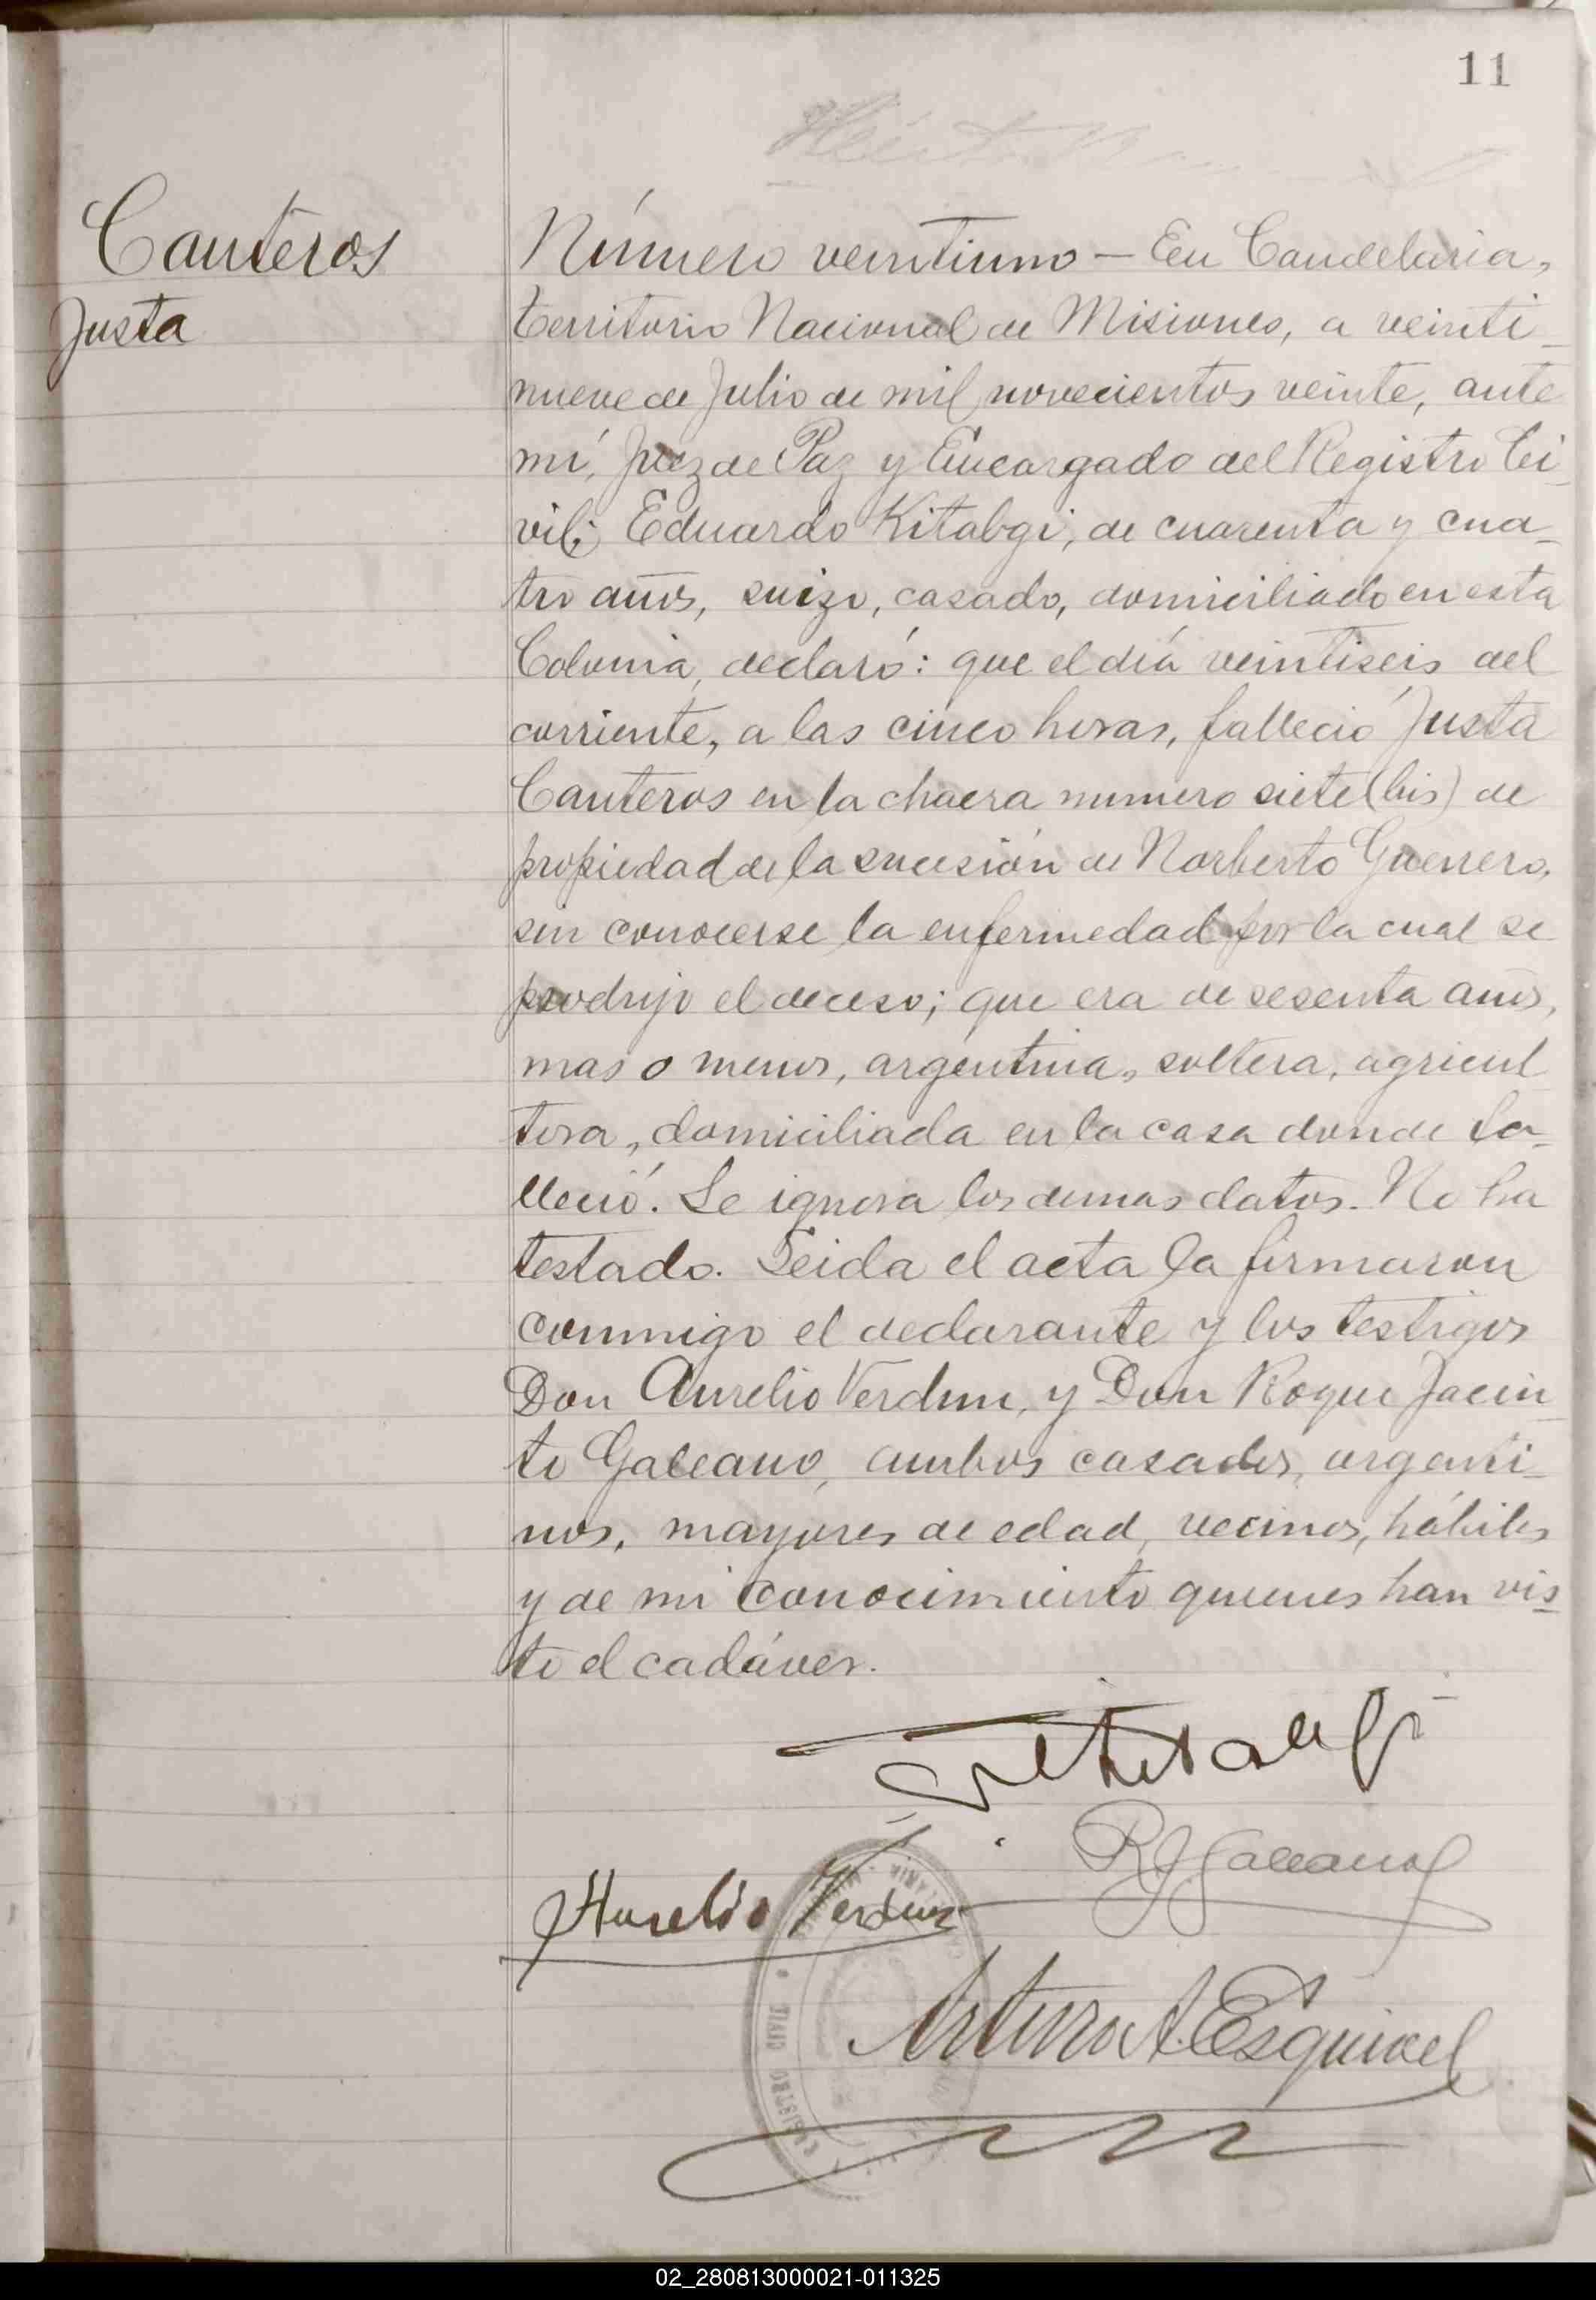 11
Canteros
Justa
Número veintiuno — En Candelaria,
territorio Nacional de Misiones, a veinti-
nueve de Julio de mil novecientos veinte, ante
mí, Juez de Paz y Encargado del Registro Ci-
vil; Eduardo Kitabgi, de cuarenta y cua-
tro años, suizo, casado, domiciliado en esta
Colonia, declaró: que el día veintiseis del
corriente, a las cinco horas, falleció Justa
Canteros en la chacra numero siete (bis) de
propiedad de la sucesión de Norberto Guerrero,
sin conocerse la enfermedad por la cual se
produjo el deceso; que era de sesenta años,
mas o menos, argentina, soltera, agricul-
tora, domiciliada en la casa donde fa-
lleció. Se ignora los demas datos. No ha
testado. Leida el acta la firmaron
conmigo el declarante y los testigos
Don Aurelio Verdun, y Don Roque Jacin-
to Galeano, ambos casados, argenti-
nos, mayores de edad, vecinos, hábiles
y de mi conocimiento quienes han vis-
to el cadáver.
Kitabgi
R J Galeano
Aurelio Verdun
Arturo A. Esquivel
REGISTRO CIVIL
02_280813000021-011325